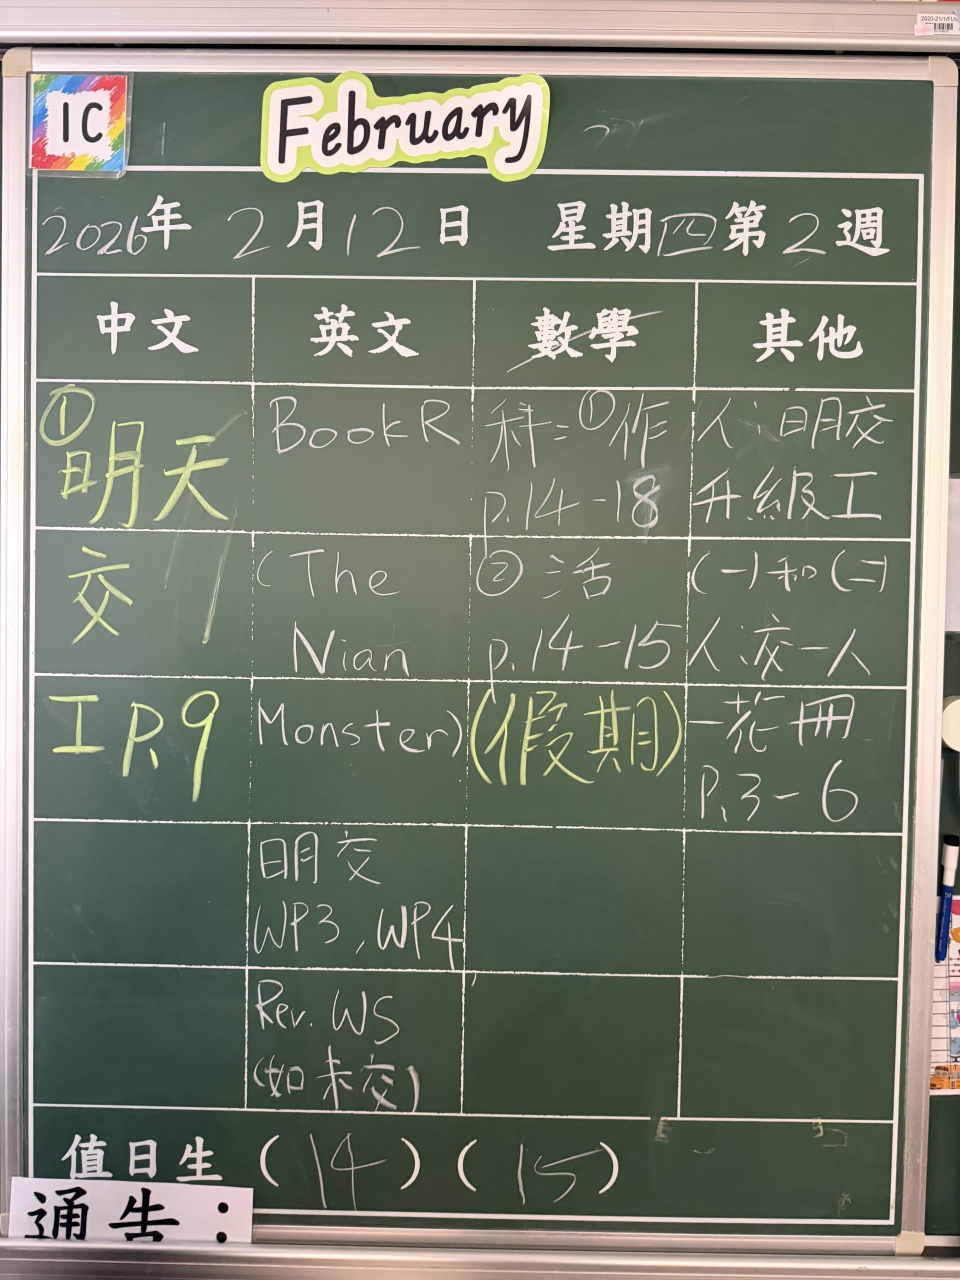 1C
February
2026年 2月12日 星期四第2週
中文
英文
數學
其他
①
明天
交
工P.9
Book R
(The
Nian
Monster)
明交
WP3, WP4
Rev. WS
(如未交)
科=①作
p.14-18
② 活
p.14-15
(假期)
人:明交
升級工
(一)和(二)
人:交一人
一花冊
P.3-6
值日生 (14) (15)
通告：